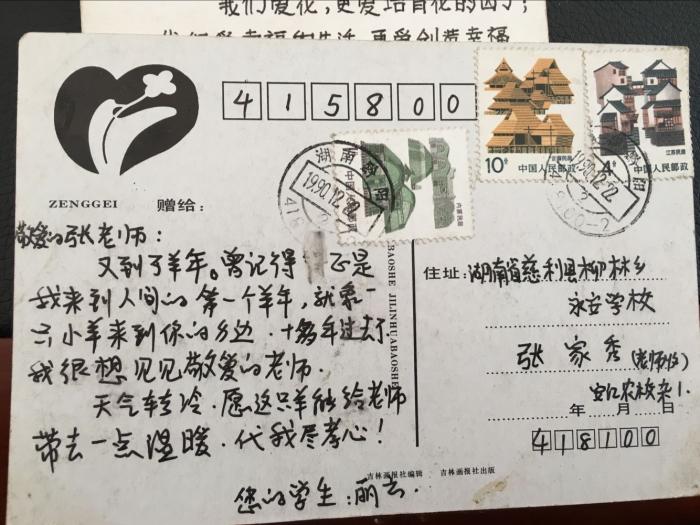 我们爱花，更爱培育花的园丁；
我们爱幸福的生活，更爱创造幸福
415800
ZENGGEI 赠给：
敬爱的张老师：
又到了羊年。曾记得 正是
我来到人间的第一个羊年，就象一
只小羊来到你的身边。十多年过去了
我很想见见敬爱的老师。
天气转冷。愿这只羊能给老师
带去一点温暖。代我尽孝心！
您的学生：丽
10分 中国人民邮政
4分 中国人民邮政
江苏民居
中国人民邮政
内蒙民居
湖南 1990.12.22
1990.12.22
BAOSHE JILINHUABAOSHE
住址：湖南省慈利县柳林乡
永安学校
张家秀（老师收）
安江农校杂1.
年 月 日
418100
吉林画报社编辑 吉林画报社出版